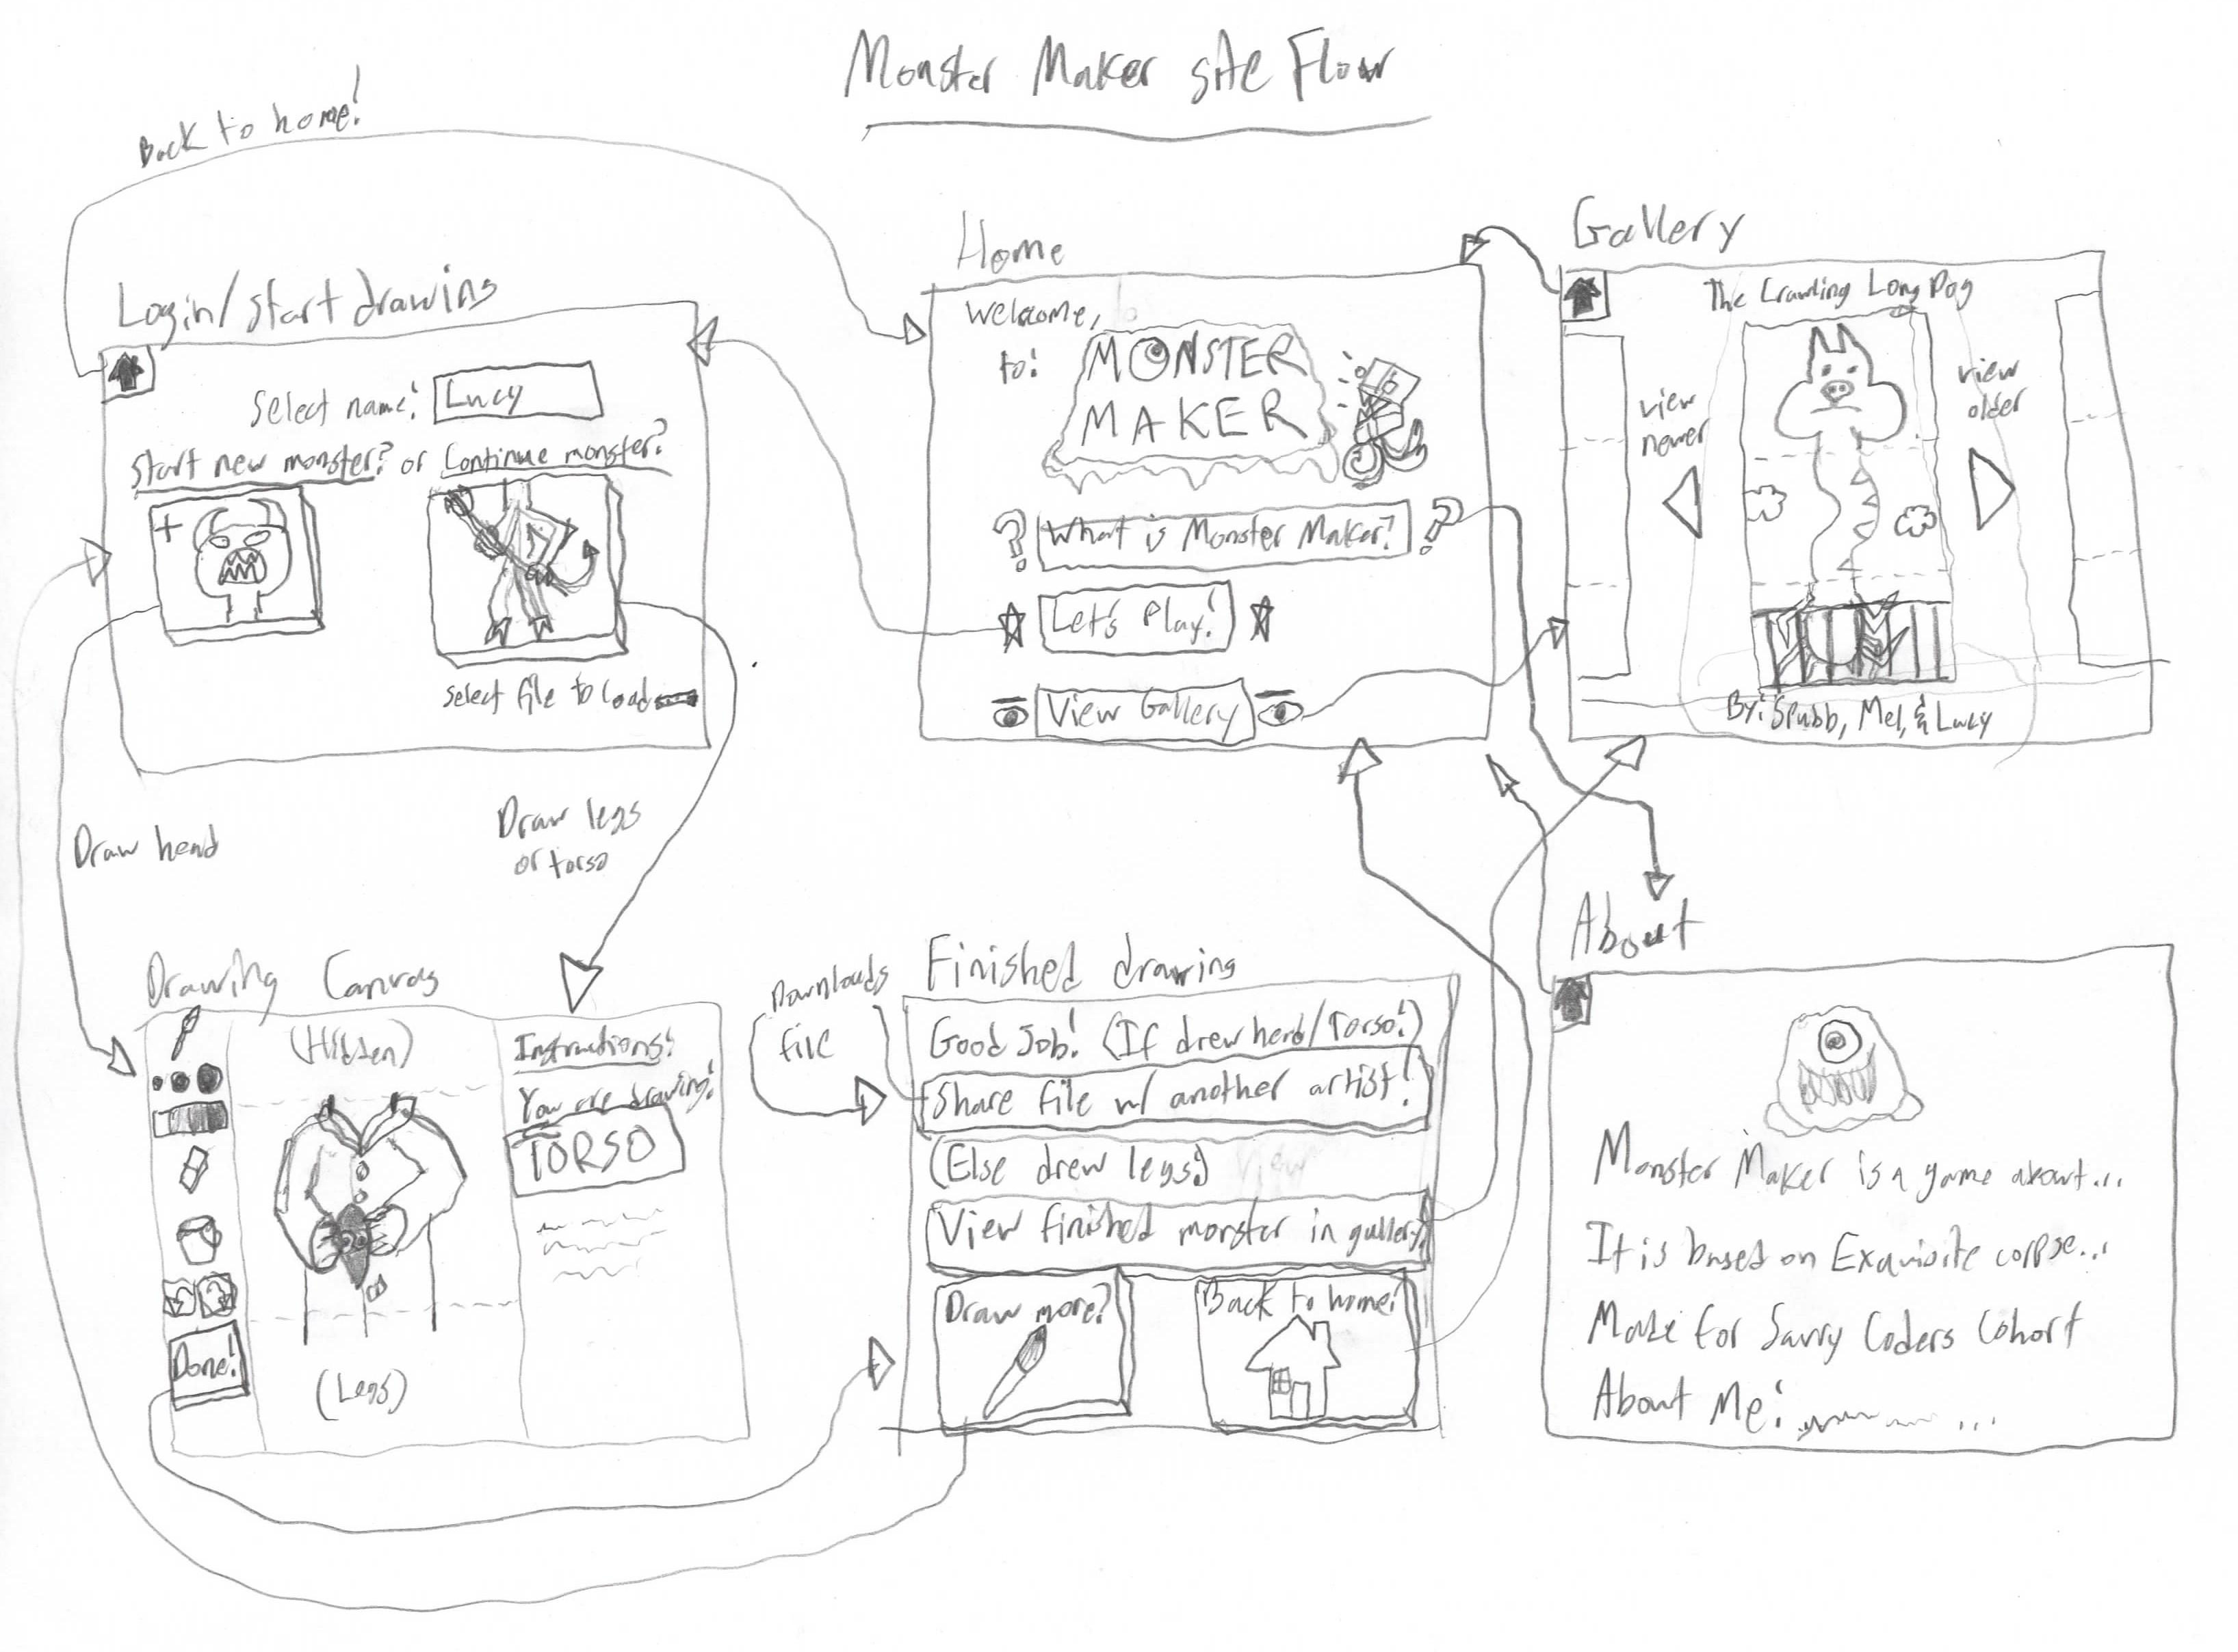 Monster Maker site Flow
Back to home!
Login/start drawing
Select name: Lucy
Start new monster? or Continue monster?
+
select file to load
Draw head
Draw legs
or torso
Home
Welcome,
to:
MONSTER
MAKER
? What is Monster Maker? ?
Let's Play!
View Gallery
Gallery
The Crawling Long Dog
view
newer
view
older
By: Spubb, Mel, & Lucy
Drawing Canvas
(Hidden)
Instructions:
You are drawing:
TORSO
Done!
(Legs)
Downloads
file
Finished drawing
Good Job! (If drew head/Torso!)
Share file w/ another artist!
(Else drew legs)
View finished monster in gallery!
Draw more?
Back to home?
About
Monster Maker is a game about...
It is based on Exquisite corpse...
Made for Savvy Coders Cohort
About Me: ...